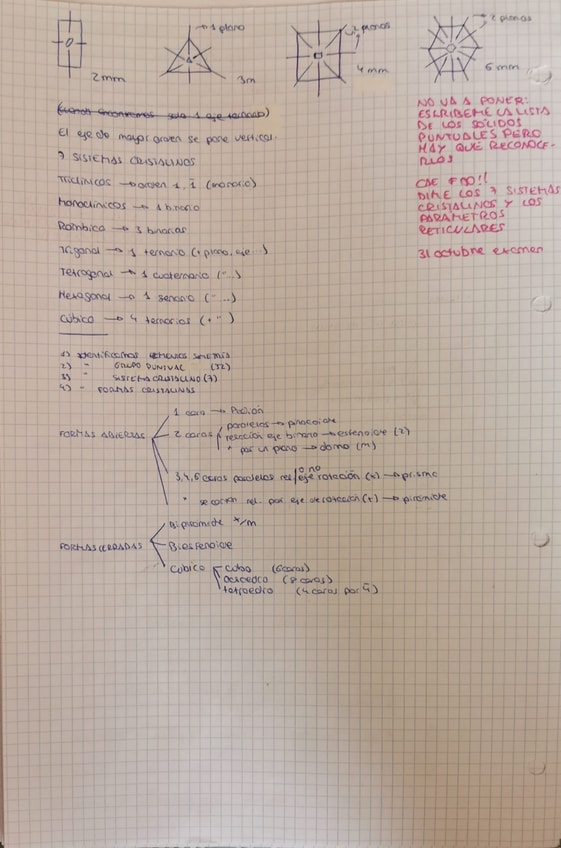 1 plano
2 planos
2 planos
2mm
3m
4mm
6mm
(Cuando encontremos solo 1 eje ternario)
El eje de mayor orden se pone vertical.
7 SISTEMAS CRISTALINOS
Triclínicos → orden 1, 1̄ (monario)
Monoclínicos → 1 binario
Rómbico → 3 binarios
Trigonal → 1 ternario (+ plano, eje ...)
Tetragonal → 1 cuaternario ("...)
Hexagonal → 1 senario ("...)
Cúbico → 4 ternarios (+ ")
NO VA A PONER:
ESCRIBEME LA LISTA
DE LOS SÓLIDOS
PUNTUALES PERO
HAY QUE RECONOCE-
RLOS
CAE FIJO!!
DIME LOS 7 SISTEMAS
CRISTALINOS Y LOS
PARÁMETROS
RETICULARES
31 octubre examen
1) Identificamos elementos simetría
2) " GRUPO PUNTUAL (32)
3) " SISTEMA CRISTALINO (7)
4) " FORMAS CRISTALINAS
FORMAS ABIERTAS
1 cara → Pedión
2 caras
paralelas → pinacoide
relación eje binario → esfenoide (2)
" por un plano → domo (m)
3,4,6 caras paralelas rel/eje rotación (x) → prisma
o no
" se cortan rel. por eje de rotación (+) → pirámide
FORMAS CERRADAS
Bipirámide x/m
Biesfenoide
Cúbico
cubo (6 caras)
octaedro (8 caras)
tetraedro (4 caras por 4̄)